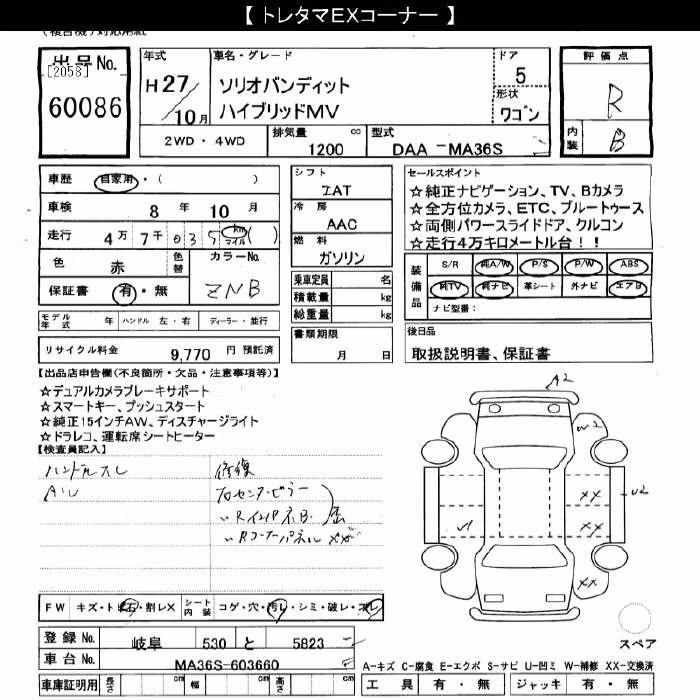 【 トレタマEXコーナー 】
(複合機)対応用紙
出品No. [2058] 60086
年式 H27/10月
車名・グレード ソリオバンディット ハイブリッドMV
ドア 5
形状 ワゴン
評価点 R
内装 B
2WD・4WD 排気量 1200 cc 型式 DAA -MA36S
車歴 自家用・( )
車検 8年 10月
走行 4万7千035 km マイル ( )
色 赤 色替 カラーNo. ZNB
保証書 有・無
モデル年式 年 ハンドル 左・右 ディーラー・並行
リサイクル料金 9,770 円 預託済
シフト IAT
冷房 AAC
燃料 ガソリン
乗車定員 名
積載量 kg
総重量 kg
書類期限 月 日
セールスポイント
☆純正ナビゲーション、TV、Bカメラ
☆全方位カメラ、ETC、ブルートゥース
☆両側パワースライドドア、クルコン
☆走行4万キロメートル台!!
装備品 S/R 純A/W P/S P/W ABS
純TV 純ナビ 革シート 外ナビ エアB
ナビ型番:
後日品
取扱説明書、保証書
【出品店申告欄(不良箇所・欠品・注意事項等)】
☆デュアルカメラブレーキサポート
☆スマートキー、プッシュスタート
☆純正15インチAW、ディスチャージライト
☆ドラレコ、運転席シートヒーター
【検査員記入】
ハンドルスレ 修復
AU 右センターピラー
〃RインパネB. 歪
〃Rコーナーパネル XX
A2
U2
XX
XX
XX
FW キズ・ト石・割レX シート内装 コゲ・穴・汚レ・シミ・破レ・スレ
登録No. 岐阜 530 と 5823
車台No. MA36S-603660
車庫証明用 長さ cm 幅 cm 高さ cm
スペア
A-キズ C-腐食 E-エクボ S-サビ U-凹ミ W-補修 XX-交換済
工具 有・無 ジャッキ 有・無